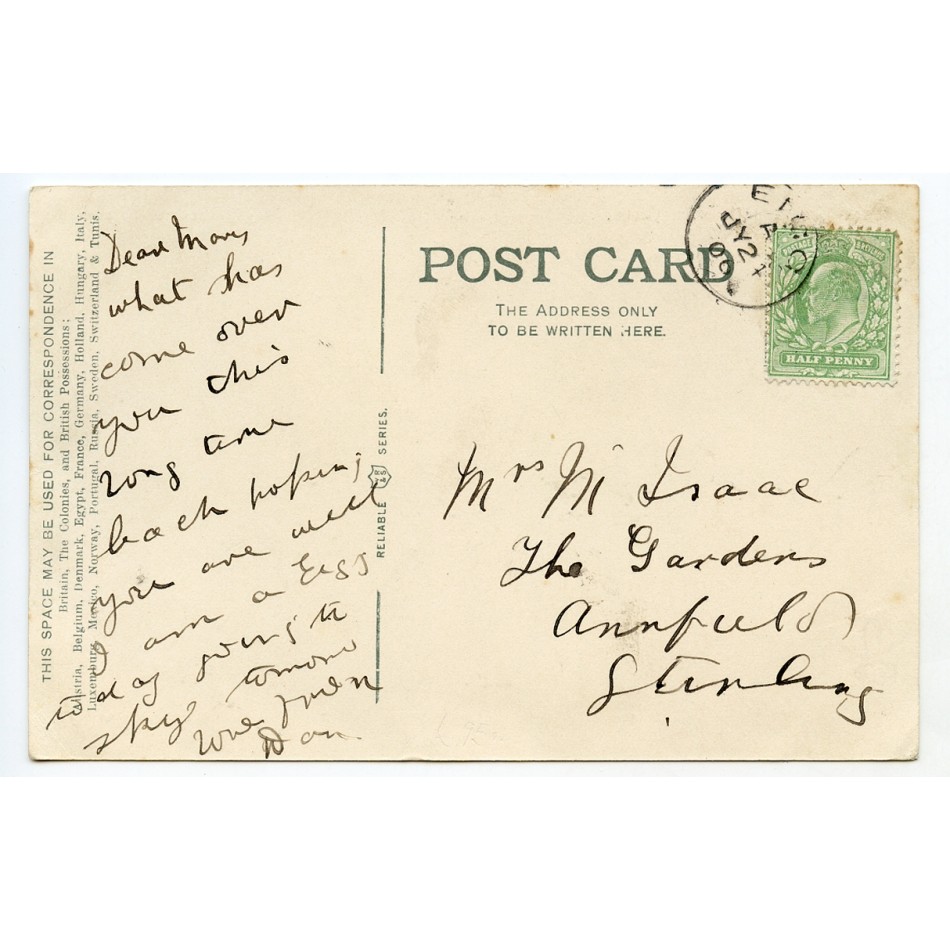 THIS SPACE MAY BE USED FOR CORRESPONDENCE IN
Britain, The Colonies, and British Possessions:
Austria, Belgium, Denmark, Egypt, France, Germany, Holland, Hungary, Italy,
Luxemburg, Mexico, Norway, Portugal, Russia, Sweden, Switzerland & Tunis.
Dear Mary
what has
come over
you this
long time
back hoping
you are well
I am a Eigg
to day going to
sky
Dan
RELIABLE WR&S SERIES.
POST CARD
THE ADDRESS ONLY
TO BE WRITTEN HERE.
JY 24
06
POSTAGE REVENUE
HALF PENNY
Mrs Mc Isaac
The Gardens
Annfield
Stirling